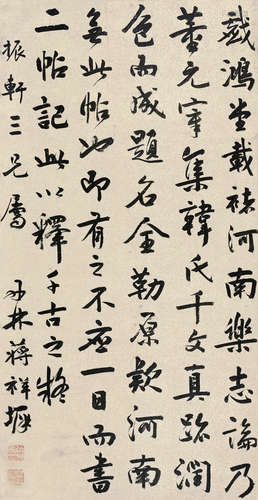 戲鴻堂載褚河南樂志論乃
董元宰集韓氏千文真跡潤
色而成題名全勒原款河南
無此帖也即有之不應一日而書
二帖記此以釋千古之疑
振軒三兄屬 子林蔣祥墀